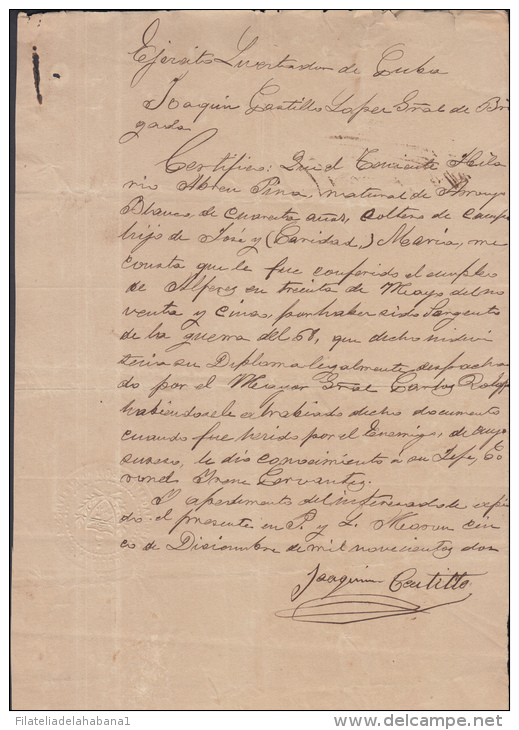 Ejército Livertador de Cuba
Joaquin Castillo Lopez Gral de Bri
gada
Certifico: Que el Teniente Hila
rio Abreu Pina, natural de Arroyo
Blanco, de cuarenta años, soltero de campo
hijo de José y (Caridad,) Maria, me
consta que le fue conferido el empleo
de Alferez en treinta de Mayo del no
venta y cinco, por haber sido Sargento
de la guerra del 68, que dicho indivi
tenia su Diploma legalmente despacha
do por el Mayor Gral Carlos Roloff
habiendosele extrabiado dicho documento
cuando fue herido por el Enemigo, de cuyo
suceso, le dio conocimiento a su Jefe, Co
ronel Cervantes.
Y apedimento del interesado le expi
do el presente en P. y L. Moron cin
co de Disiembre de mil novecientos dos
Joaquin Castillo
Filateliadelahabana1
© delcampe.net